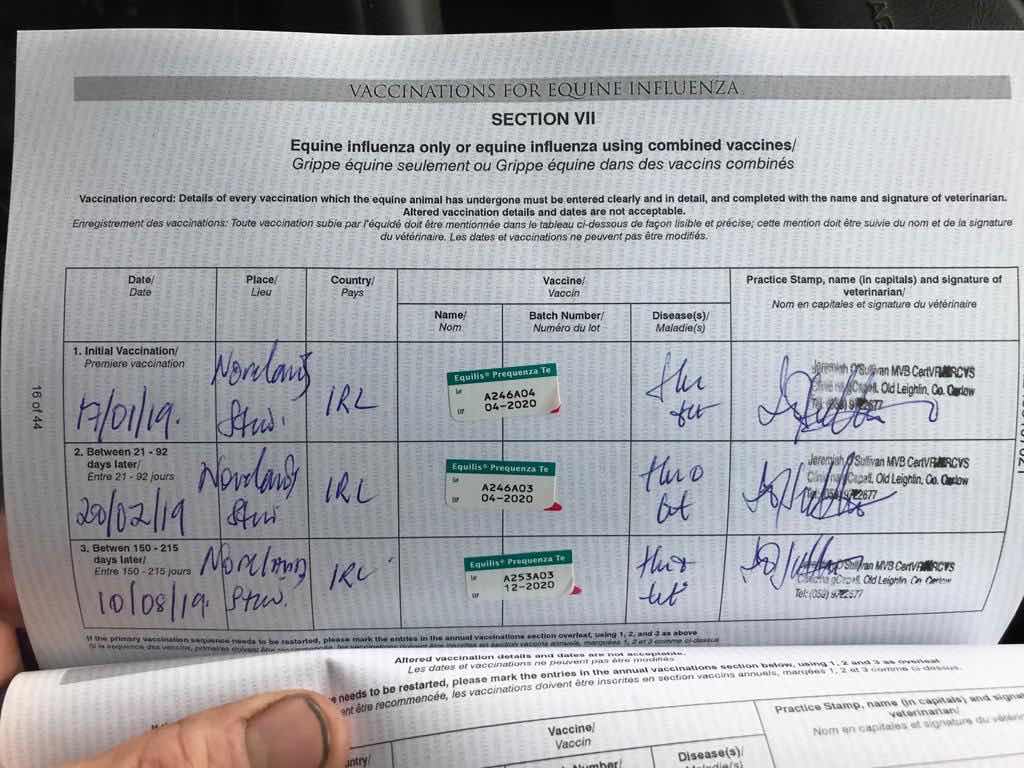 VACCINATIONS FOR EQUINE INFLUENZA
SECTION VII
Equine influenza only or equine influenza using combined vaccines/
Grippe équine seulement ou Grippe équine dans des vaccins combinés
Vaccination record: Details of every vaccination which the equine animal has undergone must be entered clearly and in detail, and completed with the name and signature of veterinarian.
Altered vaccination details and dates are not acceptable.
Enregistrement des vaccinations: Toute vaccination subie par l'équidé doit être mentionnée dans le tableau ci-dessous de façon lisible et précise; cette mention doit être suivie du nom et de la signature
du vétérinaire. Les dates et vaccinations ne peuvent pas être modifiés.
Date/
Date
Place/
Lieu
Country/
Pays
Vaccine/
Vaccin
Practice Stamp, name (in capitals) and signature of
veterinarian/
Nom en capitales et signature du vétérinaire
Name/
Nom
Batch Number/
Numéro du lot
Disease(s)/
Maladie(s)
1. Initial Vaccination/
Premiere vaccination
17/01/19.
IRL
Equilis® Prequenza Te
A246A04
04-2020
flu
tet
Jeremiah O'Sullivan MVB CertVR MRCVS
Old Leighlin, Co. Carlow
2. Between 21 - 92
days later/
Entre 21 - 92 jours
20/02/19
IRL
Equilis® Prequenza Te
A246A03
04-2020
tet
Jeremiah O'Sullivan MVB CertVR MRCVS
Old Leighlin, Co. Carlow
3. Betwen 150 - 215
days later/
Entre 150 - 215 jours
10/08/19.
IRL
Equilis® Prequenza Te
A253A03
12-2020
tet
O'Sullivan MVB CertVR MRCVS
Old Leighlin, Co. Carlow
16 of 44
If the primary vaccination sequence needs to be restarted, please mark the entries in the annual vaccinations section overleaf, using 1, 2, and 3 as above
Altered vaccination details and dates are not acceptable.
Les dates et vaccinations ne peuvent pas être modifiés
needs to be restarted, please mark the entries in the annual vaccinations section below, using 1, 2 and 3 as overleaf
être recommencée, les vaccinations doivent être inscrites en section vaccins annuels, marquées 1, 2 et 3 comme ci-dessus.
Vaccine/
Vaccin
Practice Stamp, name (in capitals) and
veterinarian/
Nom en capitales et signature du
Disease(s)/
Maladie(s)